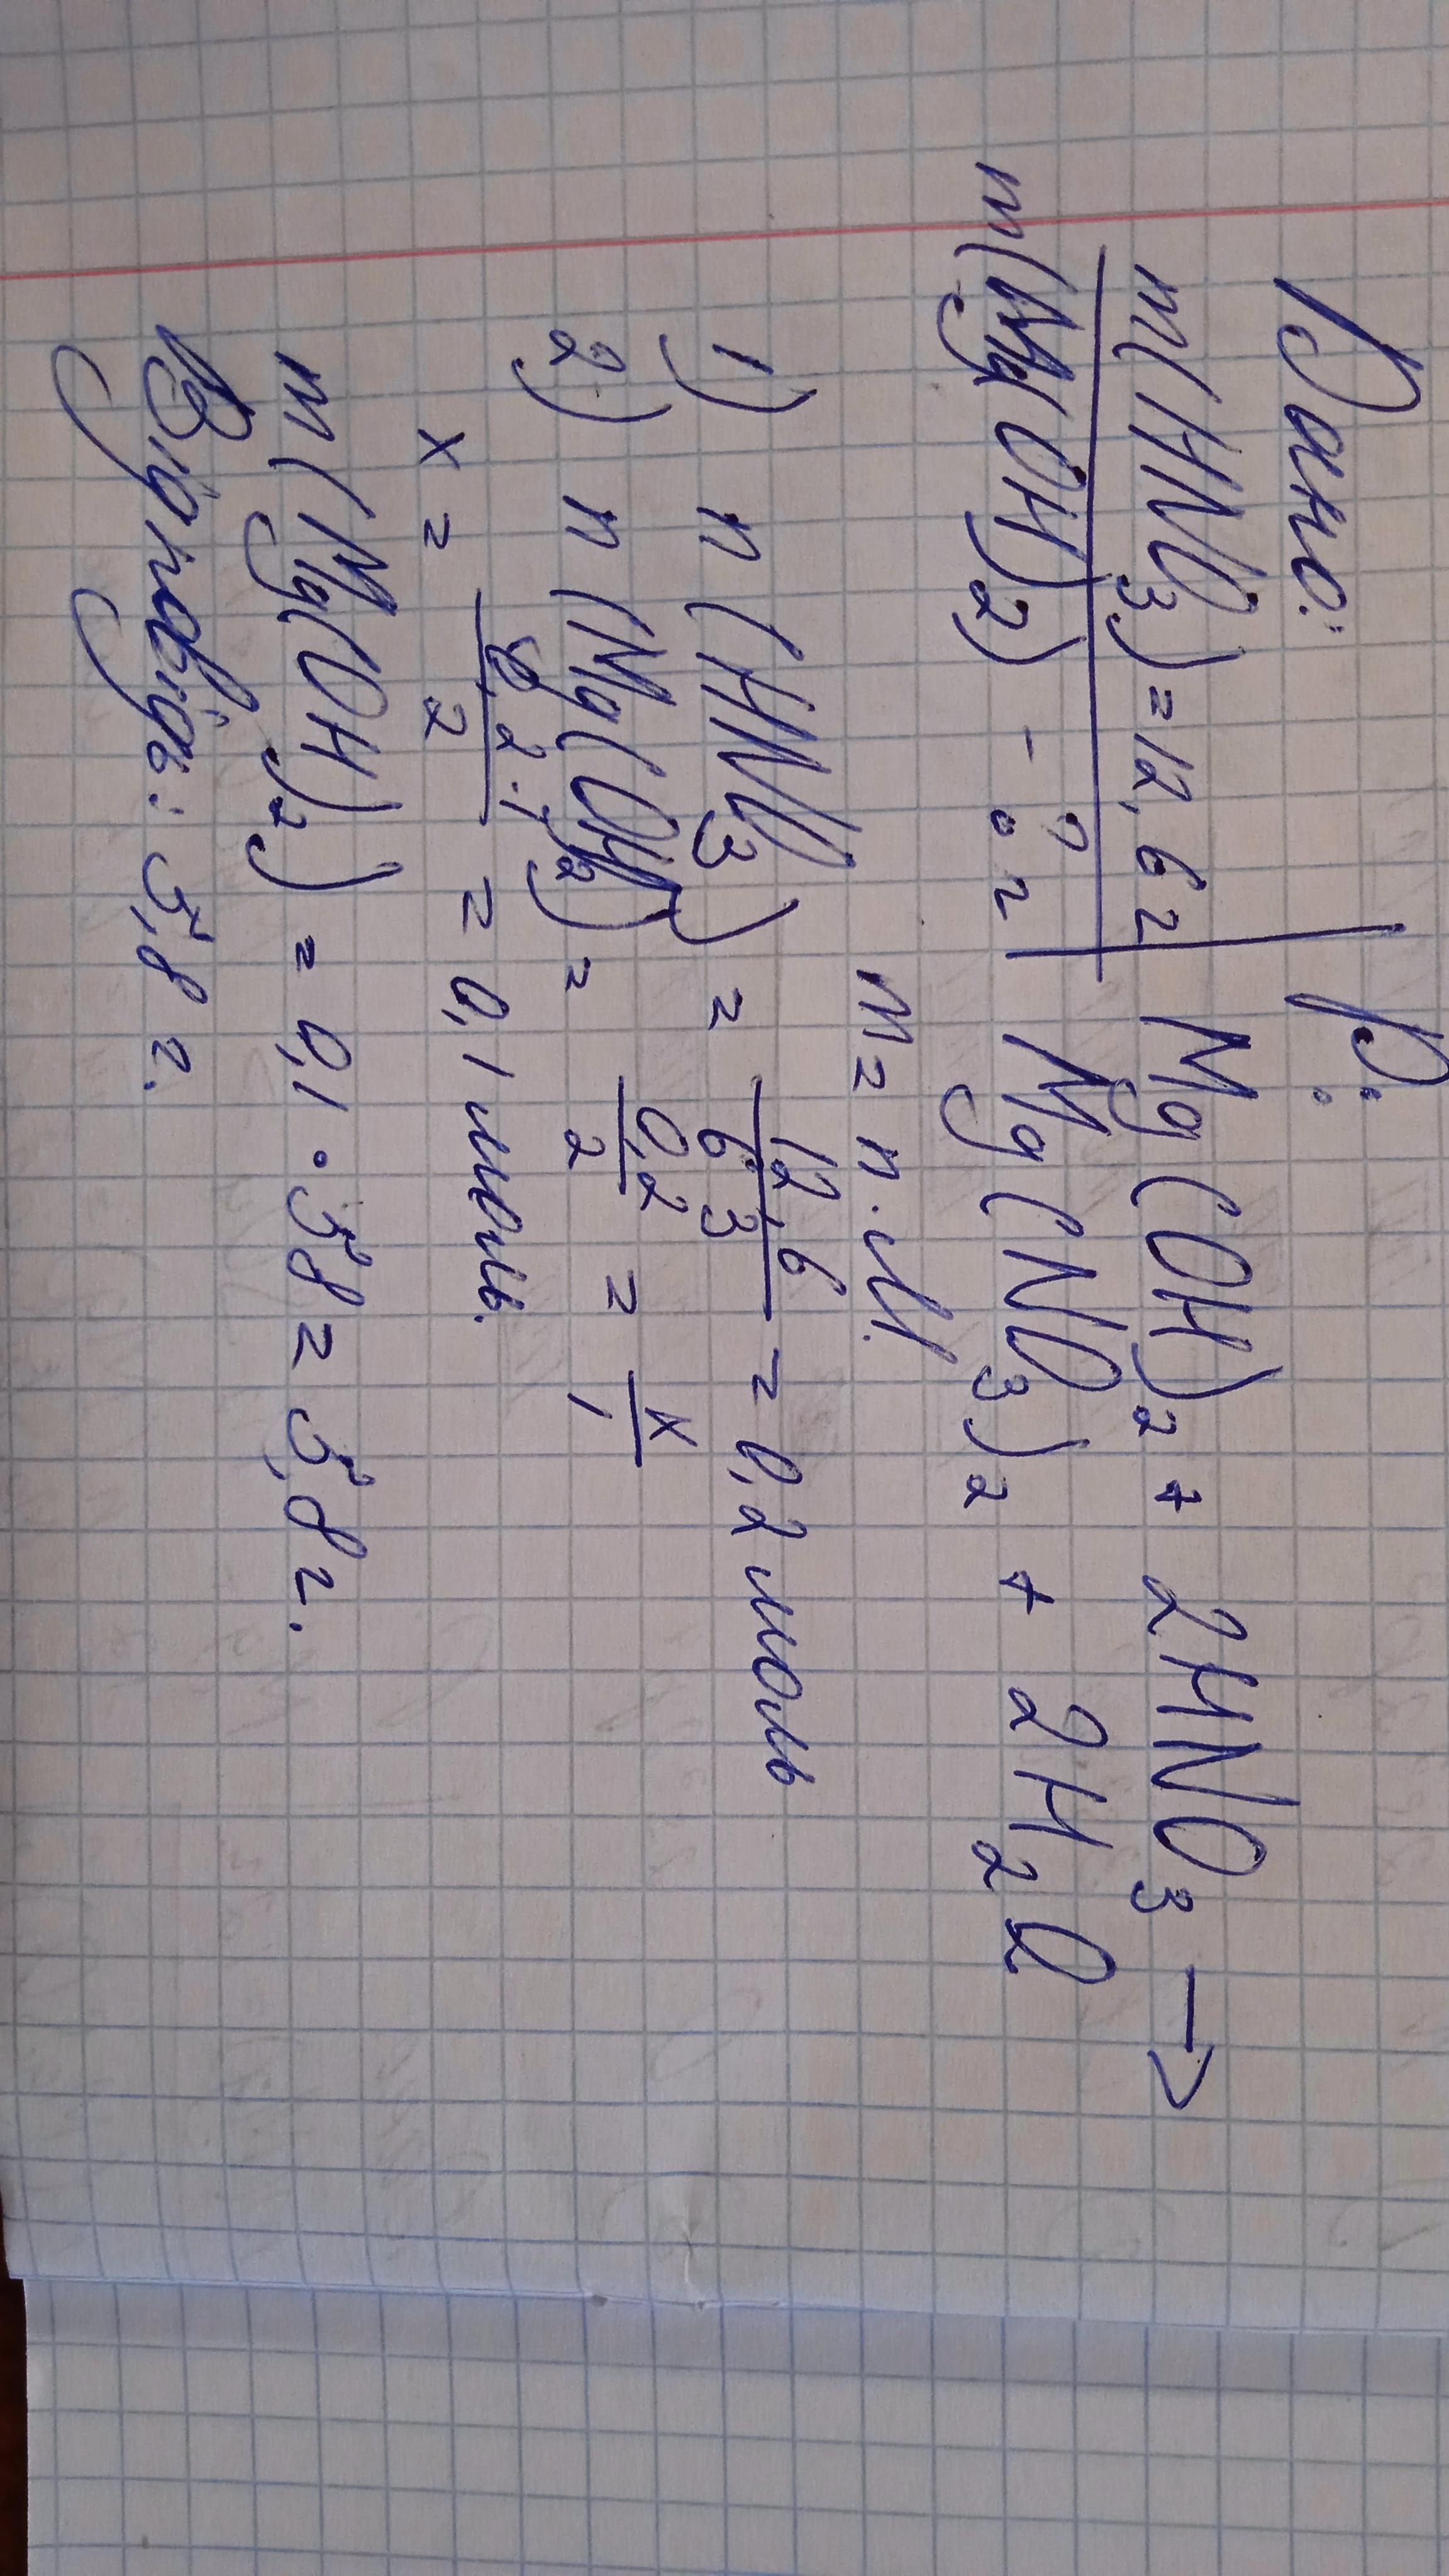 Дано:
m(HNO₃)=12,6г
m(Mg(OH)₂) - ? г
Р:
Mg(OH)₂ + 2HNO₃ →
Mg(NO₃)₂ + 2H₂O
m = n · M.
1) n (HNO₃) = 12,6/63 = 0,2 моль
2) n (Mg(OH)₂) = 0,2/2 = x/1
x = 0,2·1/2 = 0,1 моль.
m(Mg(OH)₂) = 0,1 · 58 = 5,8 г.
Відповідь: 5,8 г.